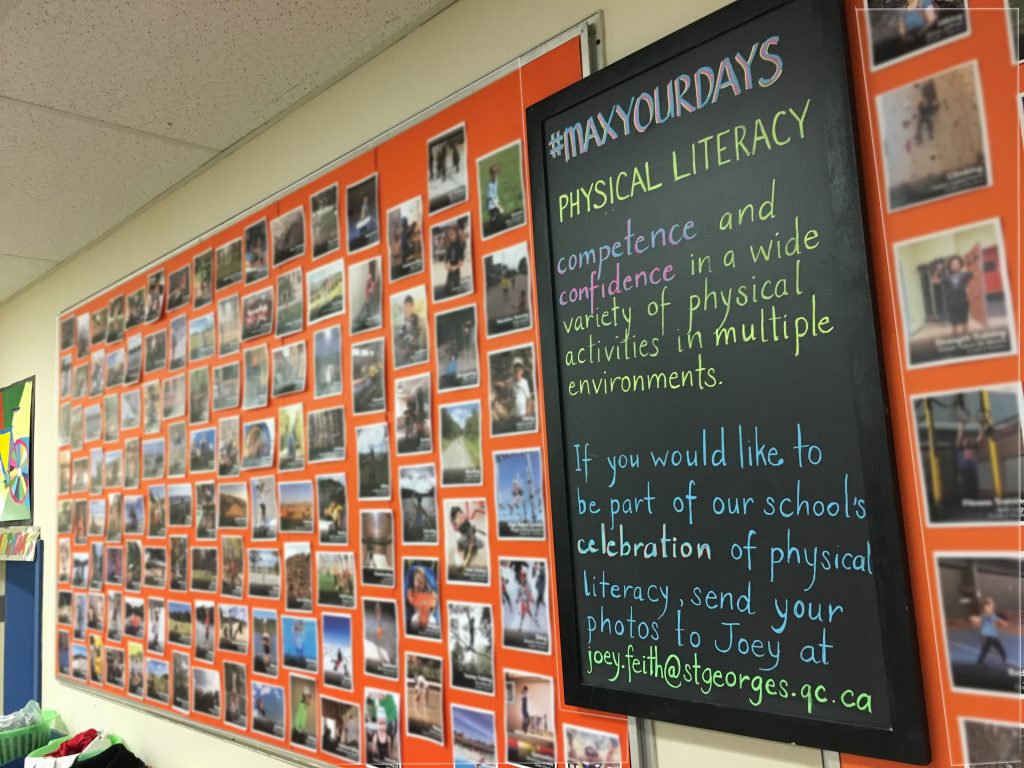 #MAXYOURDAYS
PHYSICAL LITERACY
competence and
confidence in a wide
variety of physical
activities in multiple
environments.
If you would like to
be part of our school's
celebration of physical
literacy, send your
photos to Joey at
joey.feith@stgeorges.qc.ca